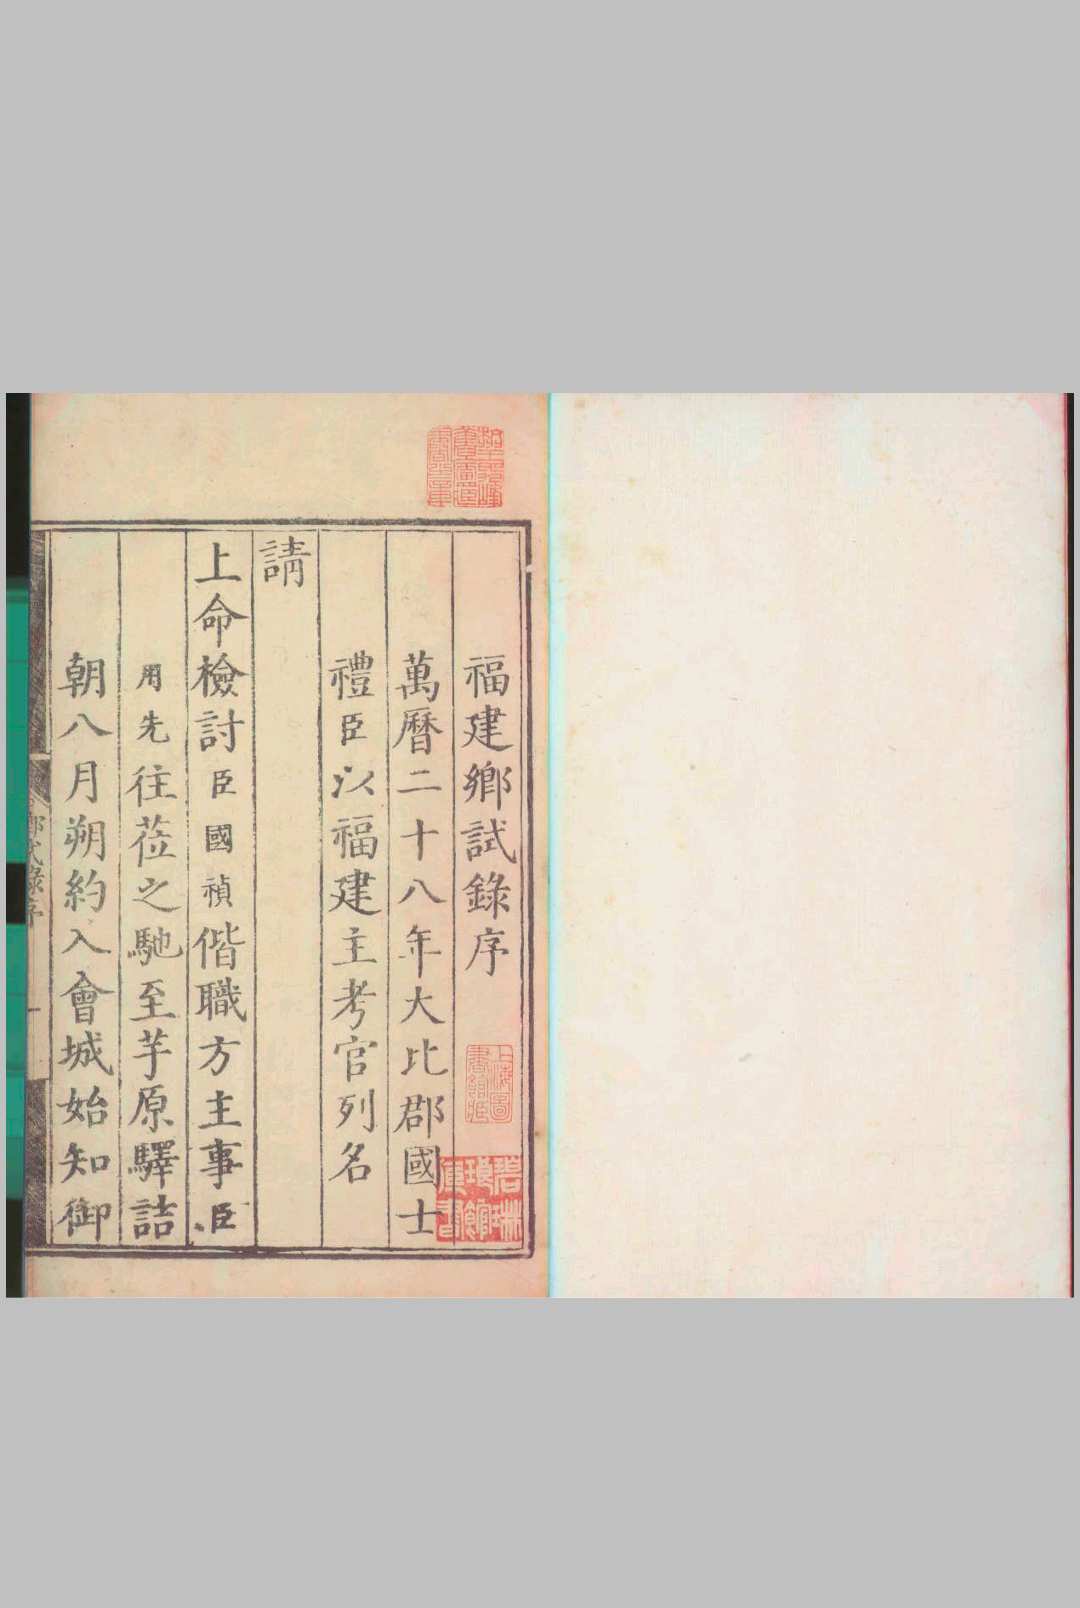 福建鄉試錄序
萬曆二十八年大比郡國士
禮臣以福建主考官列名
請
上命檢討臣國禎偕職方主事臣
用先往莅之馳至芋原驛詰
朝八月朔約入會城始知御